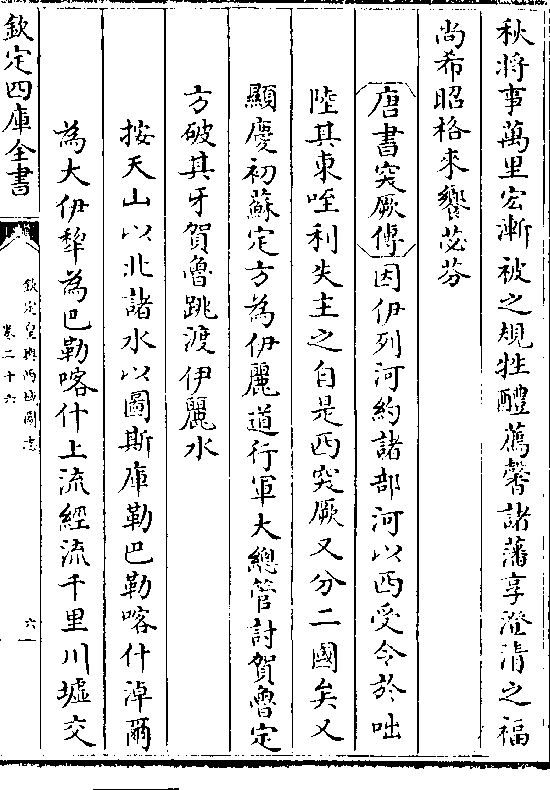 秋将事萬里宏漸被之規牲醴薦馨諸藩享澄清之福
尚希昭格來饗苾芬
唐書突厥傳因伊列河約諸部河以西受令於咄
陸其東咥利失主之自是西突厥又分二國矣又
顯慶初蘇定方為伊麗道行軍大總管討賀魯定
方破其牙賀魯跳渡伊麗水
按天山以北諸水以圖斯庫勒巴勒喀什淖爾
為大伊犂為巴勒喀什上流經流千里川墟交
欽定四庫全書
欽定皇輿西域圖志
卷二十六
六